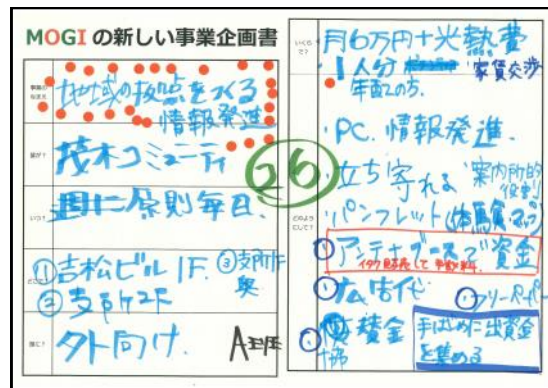 MOGIの新しい事業企画書
事業の
なまえ
地域の拠点をつくる
情報発進
誰が?
茂木コミューティ
いつ?
週に原則毎日、
①吉松ビル1F. ③支所
奥
②支所2F
誰に?
外向け.
26
いくら
で?
月6万円+光熱費
・1人分
家賃交渉
年配の方.
・PC. 情報発進.
どのよう
にして?
・立ち寄れる
案内所的
・パンフレット(体験・マップ)
①アンテナブースで資金
①広告代
①フリーペーパー
賛金
手はじめに出資金
を集める